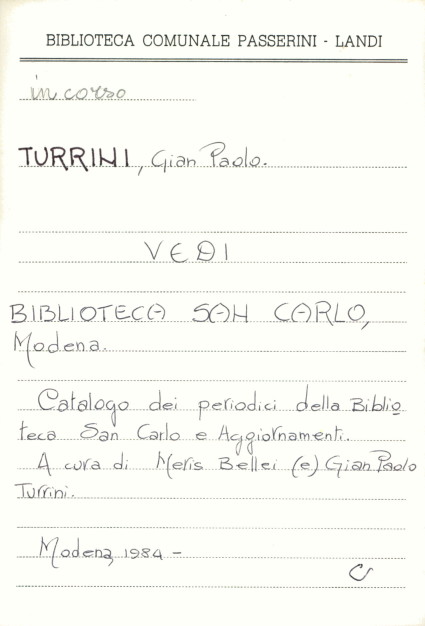 BIBLIOTECA COMUNALE PASSERINI - LANDI
in corso
TURRINI, Gian Paolo.
VEDI
BIBLIOTECA SAN CARLO,
Modena.
Catalogo dei periodici della Biblio
teca San Carlo e Aggiornamenti.
A cura di Meris Bellei (e) Gian Paolo
Turrini.
Modena, 1984 -